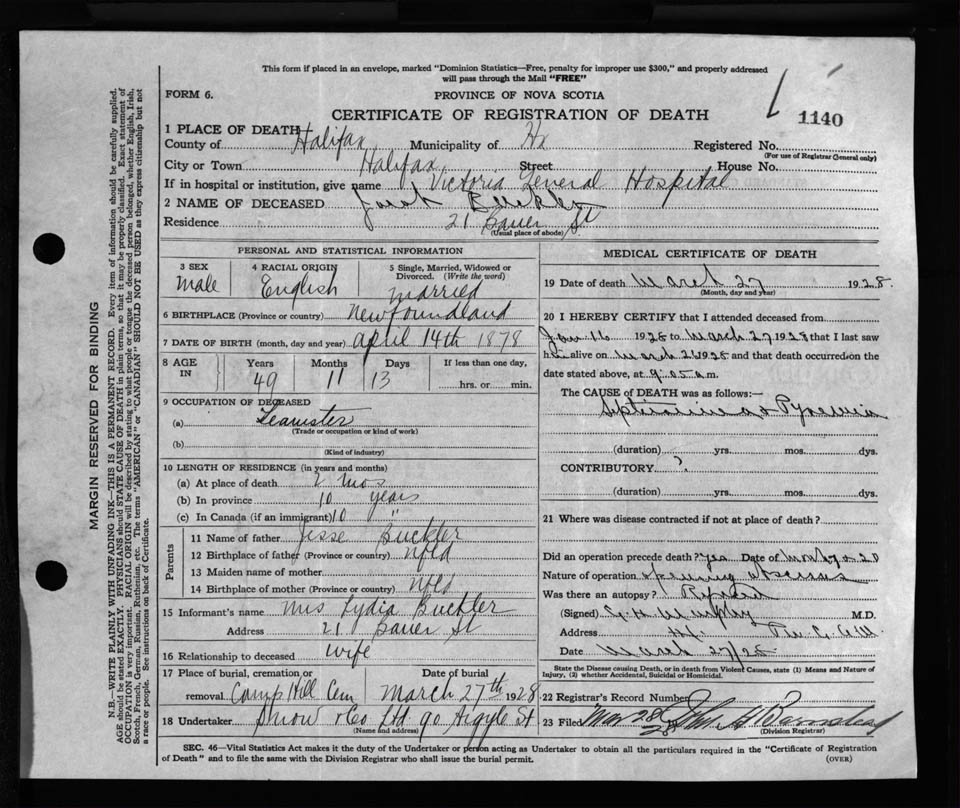 This form if placed in an envelope, marked "Dominion Statistics—Free, penalty for improper use $300," and properly addressed
will pass through the Mail "FREE"
FORM 6.
PROVINCE OF NOVA SCOTIA
CERTIFICATE OF REGISTRATION OF DEATH
1140
1 PLACE OF DEATH
County of Halifax Municipality of Hx Registered No.
(For use of Registrar General only)
City or Town Halifax Street House No.
If in hospital or institution, give name Victoria General Hospital
2 NAME OF DECEASED Buckler
Residence 21 Bauer St
(Usual place of abode)
PERSONAL AND STATISTICAL INFORMATION
3 SEX
Male
4 RACIAL ORIGIN
English
5 Single, Married, Widowed or
Divorced. (Write the word)
Married
6 BIRTHPLACE (Province or country) Newfoundland
7 DATE OF BIRTH (month, day and year) April 14th 1878
8 AGE
IN
Years
49
Months
11
Days
13
If less than one day,
hrs. or min.
9 OCCUPATION OF DECEASED
(a) Teamster
(Trade or occupation or kind of work)
(b)
(Kind of industry)
10 LENGTH OF RESIDENCE (in years and months)
(a) At place of death 2 mos
(b) In province 10 years
(c) In Canada (if an immigrant) 10 "
Parents
11 Name of father Jesse Buckler
12 Birthplace of father (Province or country) Nfld
13 Maiden name of mother
14 Birthplace of mother (Province or country) Nfld
15 Informant's name Mrs Lydia Buckler
Address 21 Bauer St
16 Relationship to deceased wife
17 Place of burial, cremation or
removal Camp Hill Cem March 27th 1928
18 Undertaker Snow & Co Ltd 90 Argyle St
(Name and address)
MEDICAL CERTIFICATE OF DEATH
19 Date of death March 27 1928
(Month, day and year)
20 I HEREBY CERTIFY that I attended deceased from
Jan 16 1928 to March 27 1928 that I last saw
h alive on March 26 1928 and that death occurred on the
date stated above, at 9.05 a.m.
The CAUSE OF DEATH was as follows:
(duration) yrs. mos. dys.
CONTRIBUTORY ?
(duration) yrs. mos. dys.
21 Where was disease contracted if not at place of death?
Did an operation precede death? yes Date of
Nature of operation
Was there an autopsy?
(Signed) M.D.
Address
Date March 27/28
State the Disease causing Death, or in death from Violent Causes, state (1) Means and Nature of
Injury, (2) whether Accidental, Suicidal or Homicidal.
22 Registrar's Record Number
23 Filed Mar 28
28
(Division Registrar)
SEC. 46—Vital Statistics Act makes it the duty of the Undertaker or person acting as Undertaker to obtain all the particulars required in the "Certificate of Registration
of Death" and to file the same with the Division Registrar who shall issue the burial permit.
(OVER)
MARGIN RESERVED FOR BINDING
N.B.—WRITE PLAINLY, WITH UNFADING INK—THIS IS A PERMANENT RECORD. Every item of information should be carefully supplied.
AGE should be stated EXACTLY. PHYSICIANS should STATE CAUSE OF DEATH in plain terms, so that it may be properly classified. Exact statement of
OCCUPATION is very important. RACIAL ORIGIN will be described by stating to what people or tongue the deceased person belonged, whether English, Irish,
Scotch, French, German, Russian, Ruthenian, etc. The terms "AMERICAN" or "CANADIAN" SHOULD NOT BE USED as they express citizenship but not
a race or people. See instructions on back of Certificate.